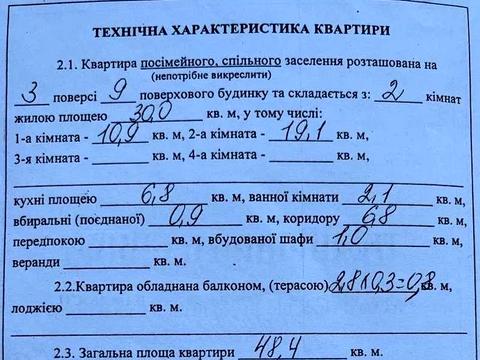 ТЕХНІЧНА ХАРАКТЕРИСТИКА КВАРТИРИ
2.1. Квартира посімейного, спільного заселення розташована на
(непотрібне викреслити)
3 поверсі 9 поверхового будинку та складається з: 2 кімнат
жилою площею 30,0 кв. м, у тому числі:
1-а кімната - 10,9 кв. м, 2-а кімната - 19,1 кв. м,
3-я кімната - кв. м, 4-а кімната - кв. м,
кухні площею 6,8 кв. м, ванної кімнати 2,1 кв. м,
вбиральні (поєднаної) 0,9 кв. м, коридору 6,8 кв. м,
передпокою кв. м, вбудованої шафи 1,0 кв. м,
веранди кв. м.
2.2.Квартира обладнана балконом, (терасою) 2,8х0,3=0,8 кв. м,
лоджією кв. м.
2.3. Загальна площа квартири 48,4 кв. м.